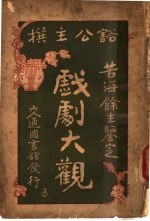 谿公主撰
苦海餘生鑒定
戲劇大觀
文通圖書館發行